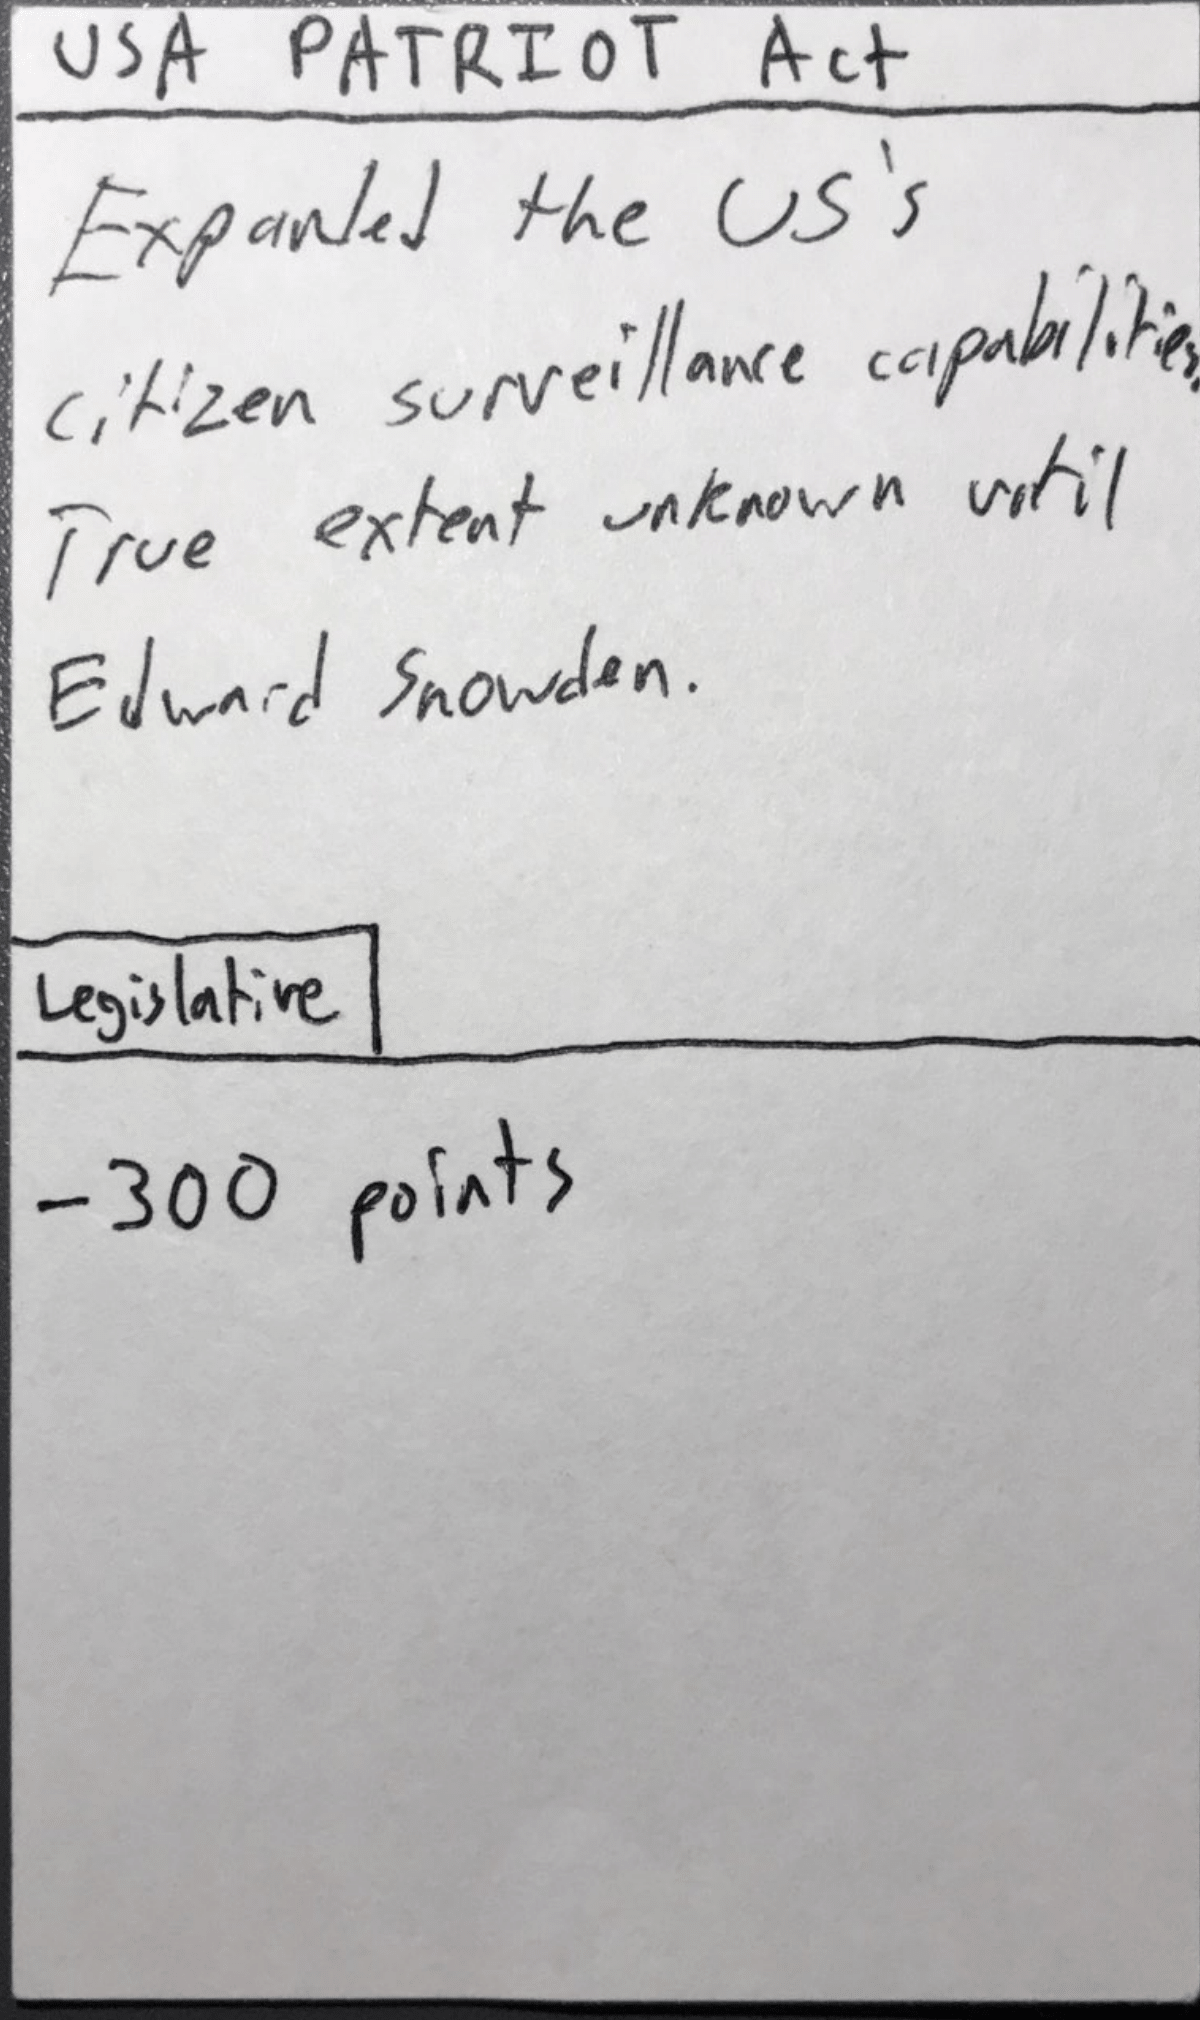 USA PATRIOT Act
Expanded the US's
citizen surveillance capabilities.
True extent unknown until
Edward Snowden.
Legislative
-300 points